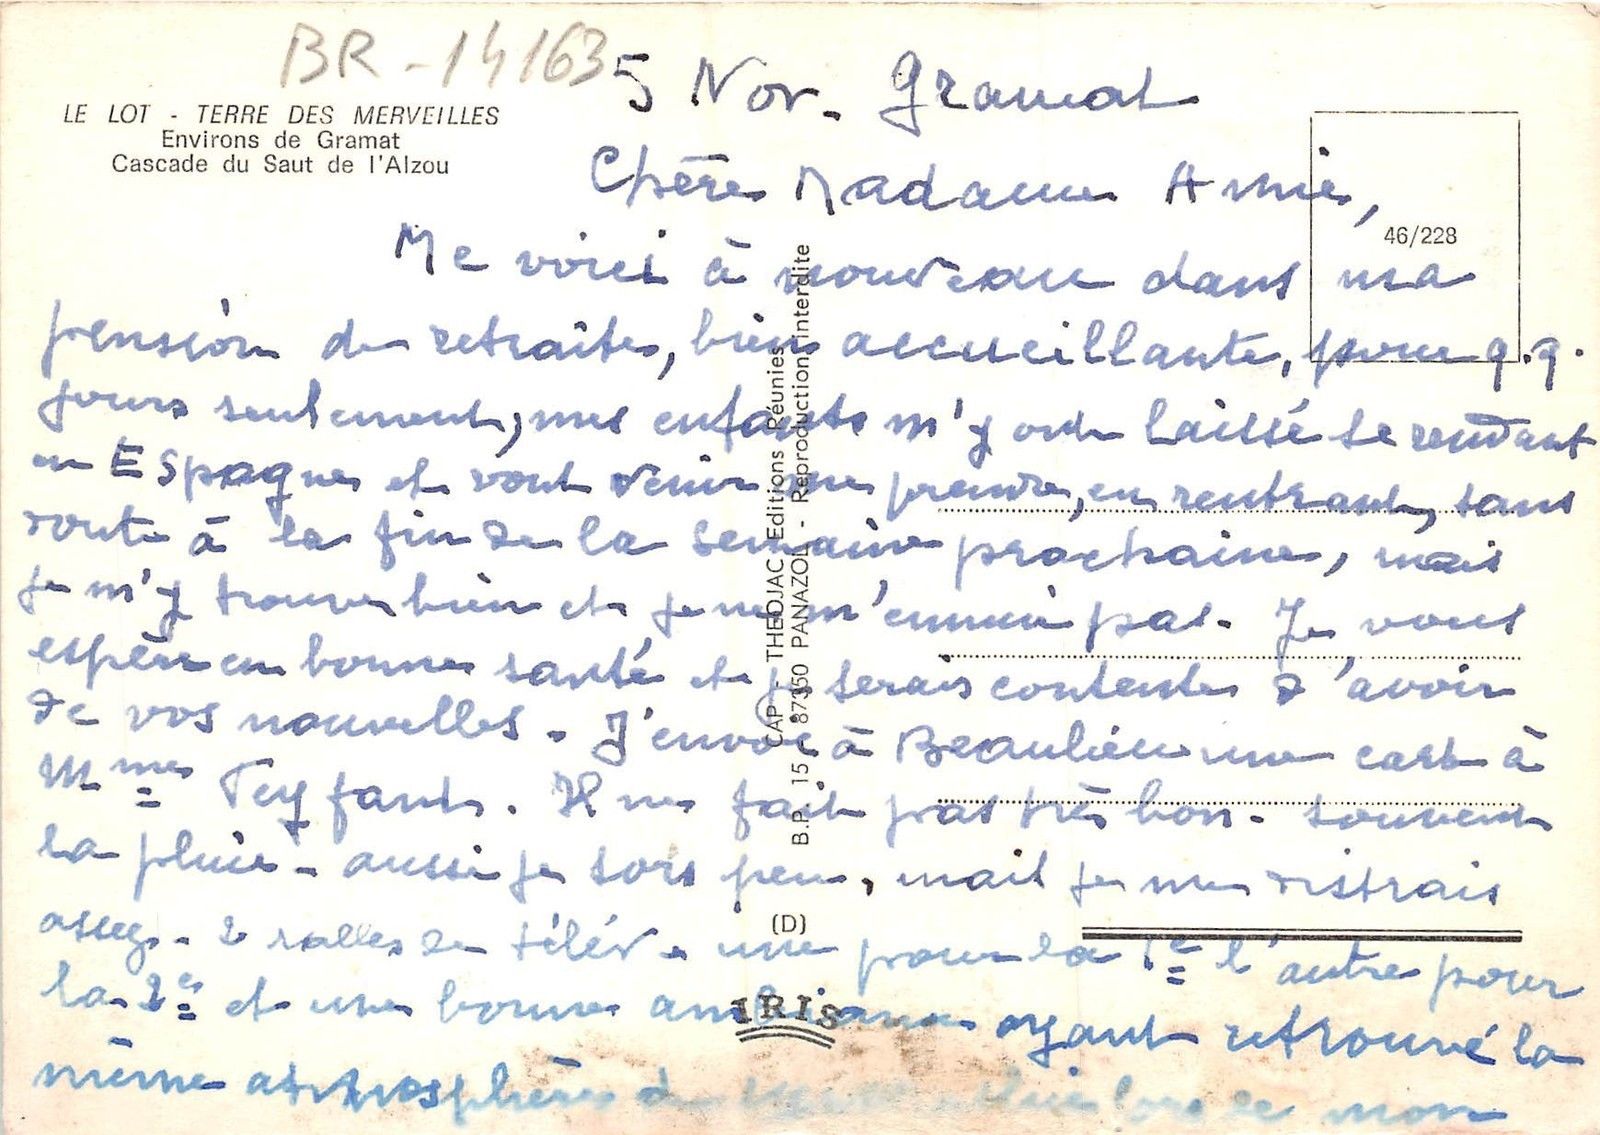 BR - 14163
LE LOT - TERRE DES MERVEILLES
Environs de Gramat
Cascade du Saut de l'Alzou
46/228
5 Nov. Gramat
Chère Madame Amie,
Me voici à nouveau dans ma
pension de retraite, bien accueillante, pour q.q.
jours seulement, mes enfants m'y ont laissé se rendant
en Espagne et vont venir me prendre, en rentrant, sans
doute à la fin de la semaine prochaine, mais
je m'y trouve bien et je ne m'ennuie pas. Je vous
espère en bonne santé et je serais contente d'avoir
de vos nouvelles. J'envoie à Beaulieu une carte à
Mme Teyfant. Il ne fait pas très bon. souvent
la pluie - aussi je sors peu, mais je me distrais
assez. 2 salles de télév. une pour la 1e l'autre pour
la 2e et une bonne ambiance ayant retrouvé la
même atmosphère lors de mon
CAP - THEOJAC Editions Réunies
B.P. 15 - 87350 PANAZOL - Reproduction interdite
(D)
IRIS